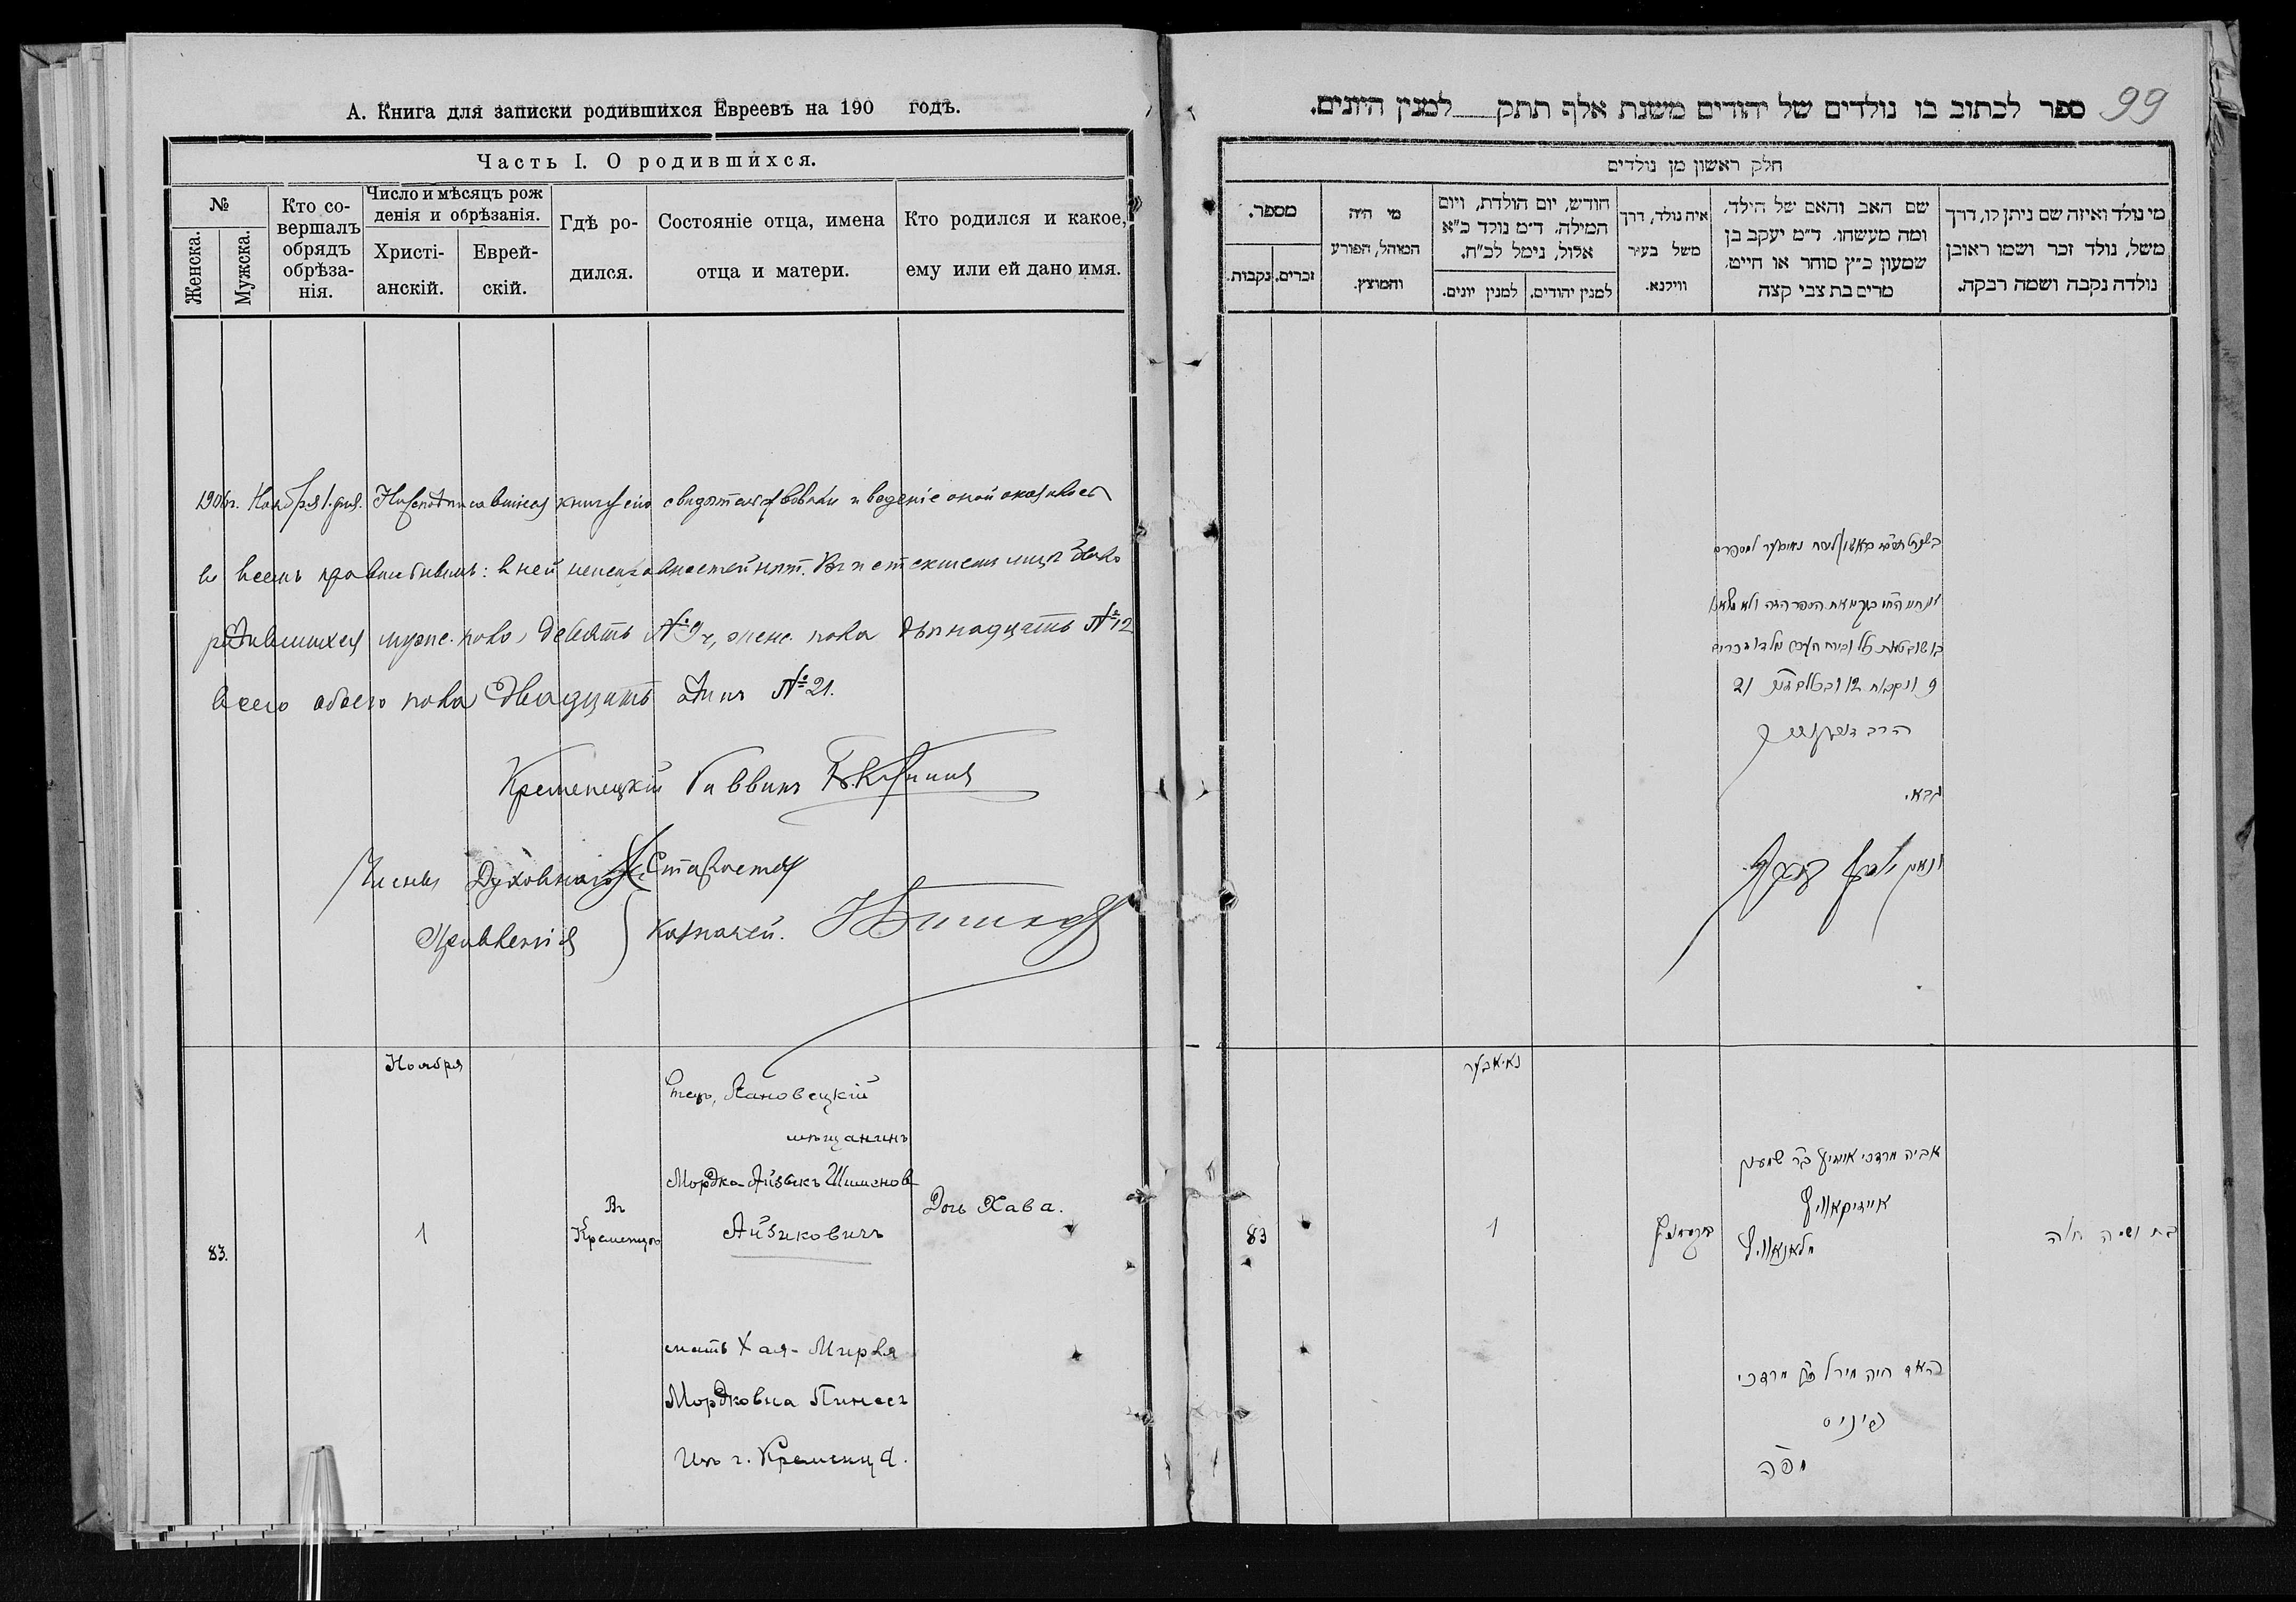 А. Книга для записки родившихся Евреевъ на 190 годъ.
Часть I. О родившихся.
№
Женска.
Мужска.
Кто со-
вершалъ
обрядъ
обрѣза-
нія.
Число и мѣсяцъ рож
денія и обрѣзанія.
Христі-
анскій.
Еврей-
скій.
Гдѣ ро-
дился.
Состояніе отца, имена
отца и матери.
Кто родился и какое,
ему или ей дано имя.
1906 г. Ноября 1 дня. Нижеподписавшіеся книгу сію свидѣтельствовали и веденіе оной оказалось
во всемъ правильнымъ: в ней неисправностей нѣт. Въ истекшем мцѣ было
родившихся мужс. пола, девять №9, женс. пола двѣнадцать №12
всего обоего пола Двадцать одинъ №21.
Кременецкій Раввинъ
Члены Духовнаго Староста
Правленія Казначей.
Ноября
83.
1
Въ
Кременцѣ
Отецъ, Лановецкій
мѣщанинъ
Мордка-Айзыкъ Шименов
Айзиковичъ
мать Хая-Мирля
Мордковна Пинесъ
Изъ г. Кременца.
Дочь Хава.
99
ספר לכתוב בו נולדים של יהודים משנת אלף תתק למנין היונים.
חלק ראשון מן נולדים
מי נולד ואיזה שם ניתן לו, דרך
משל, נולד זכר ושמו ראובן
נולדה נקבה ושמה רבקה.
שם האב והאם של הילד,
ומה מעשהו. ד"מ יעקב בן
שמעון כ"ץ סוחר או חייט,
מרים בת צבי קצה
איה נולד, דרך
משל בעיר
ווילנא.
חודש, יום הולדת, ויום
המילה. ד"מ נולד כ"א
אלול, נימל לכ"ח.
למנין יהודים.
למנין יונים.
מי היה
המוהל, הפורע
והמוצץ.
מספר.
זכרים.
נקבות.
9 ונקבות 12 21
הרב
גבאי
נאיאבער
83
1
אביה מרדכי אייזיק ב"ר שמעון
אייזיקאוויץ
מלאנאוויץ
האם חיה מירל בת מרדכי
פינס
מפה
בת ושמה חוה